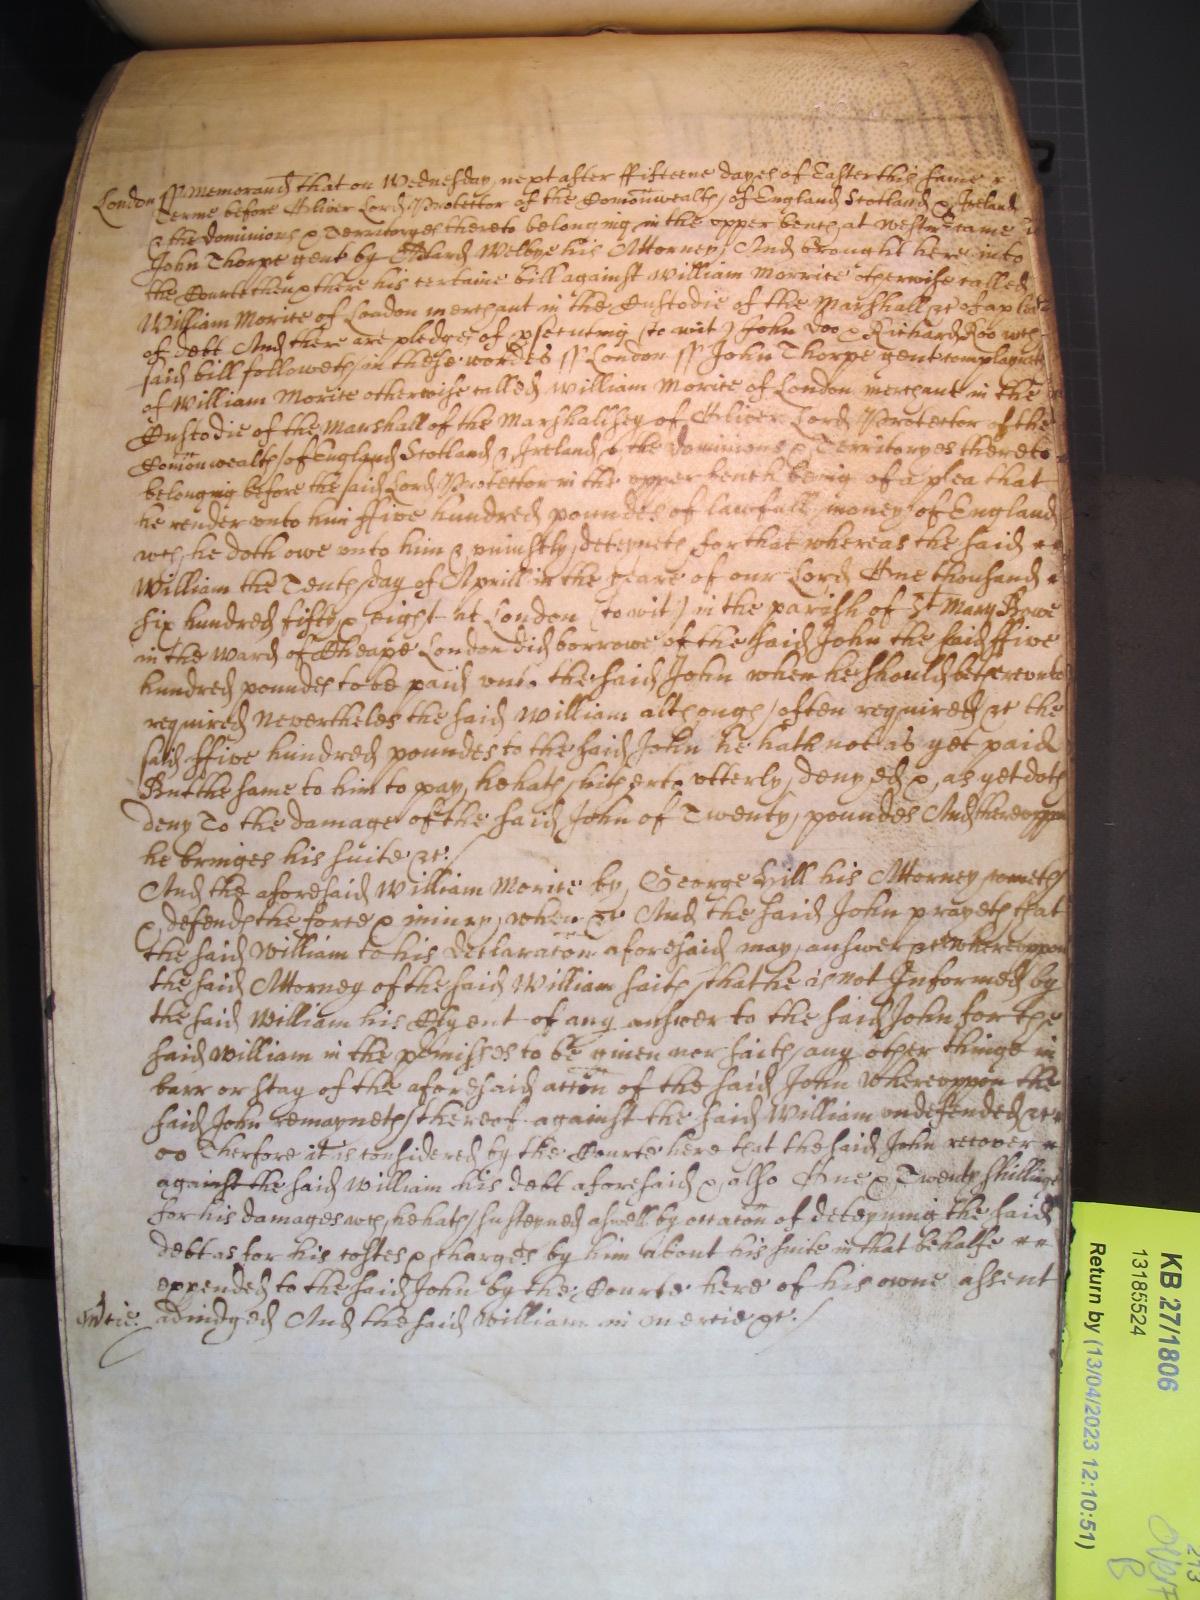 London ss Memorand that on Wednesday next after ffifteene dayes of Easter this same
Terme before Oliver Lord Protector of the Comonwealth of England Scotland & Ireland
& the dominions & Territoryes thereto belonging in the upper bench at Westmr came
John Thorpe gent by Edward Welbye his Attorney And brought here into
the Courte then & there his certaine bill against William Morrice otherwise called
William Morice of London merchant in the Custodie of the Marshall &c of a plea
of debt And there are pledges of psecuting (to wit) John Doo & Richard Roo wch
said bill followeth in these wordes ss London ss John Thorpe gent complayneth
of William Morice otherwise called William Morice of London merchant in the
Custodie of the Marshall of the Marshallsey of Oliver Lord Protector of the
Comonwealth of England Scotland & Ireland & the dominions & Territoryes thereto
belonging before the said Lord Protector in the upper bench being of a plea that
he render unto him ffive hundred poundes of lawfull money of England
wch he doth owe unto him & uniustly deteyneth for that whereas the said
William the Tenth day of Aprill in the yeare of our Lord One thousand
six hundred fifty & eight at London (to wit) in the parish of St Mary Bowe
in the Ward of Cheape London did borrowe of the said John the said ffive
hundred poundes to be paid unto the said John when he should be thereunto
required Nevertheles the said William although often required &c the
said ffive hundred poundes to the said John he hath not as yet paid
But the same to him to pay he hath hitherto utterly denyed & as yet doth
deny To the damage of the said John of Twenty poundes And thereuppon
he bringes his suite &c:/
And the aforesaid William Morice by George Hill his Attorney cometh
& defends the force & iniury when &c And the said John prayeth that
the said William to his declaracon aforesaid may answer &c Whereuppon
the said Attorney of the said William saith that he is not Informed by
the said William his Clyent of any answer to the said John for the
said William in the pmisses to be given nor saith any other thinge in
barr or stay of the aforesaid accon of the said John Whereuppon the
said John remayneth thereof against the said William undefended &c
Therfore it is considered by the Courte here that the said John recover
against the said William his debt aforesaid & also One & Twenty shillings
for his damages wch he hath susteyned aswell by occacon of deteyning the said
debt as for his costes & charges by him about his suite in that behalfe
expended to the said John by the Courte here of his owne assent
Mcie: adiudged And the said William in mercie &c:/
KB 27/1806
13185524
Return by (13/04/2023 12:10:51)